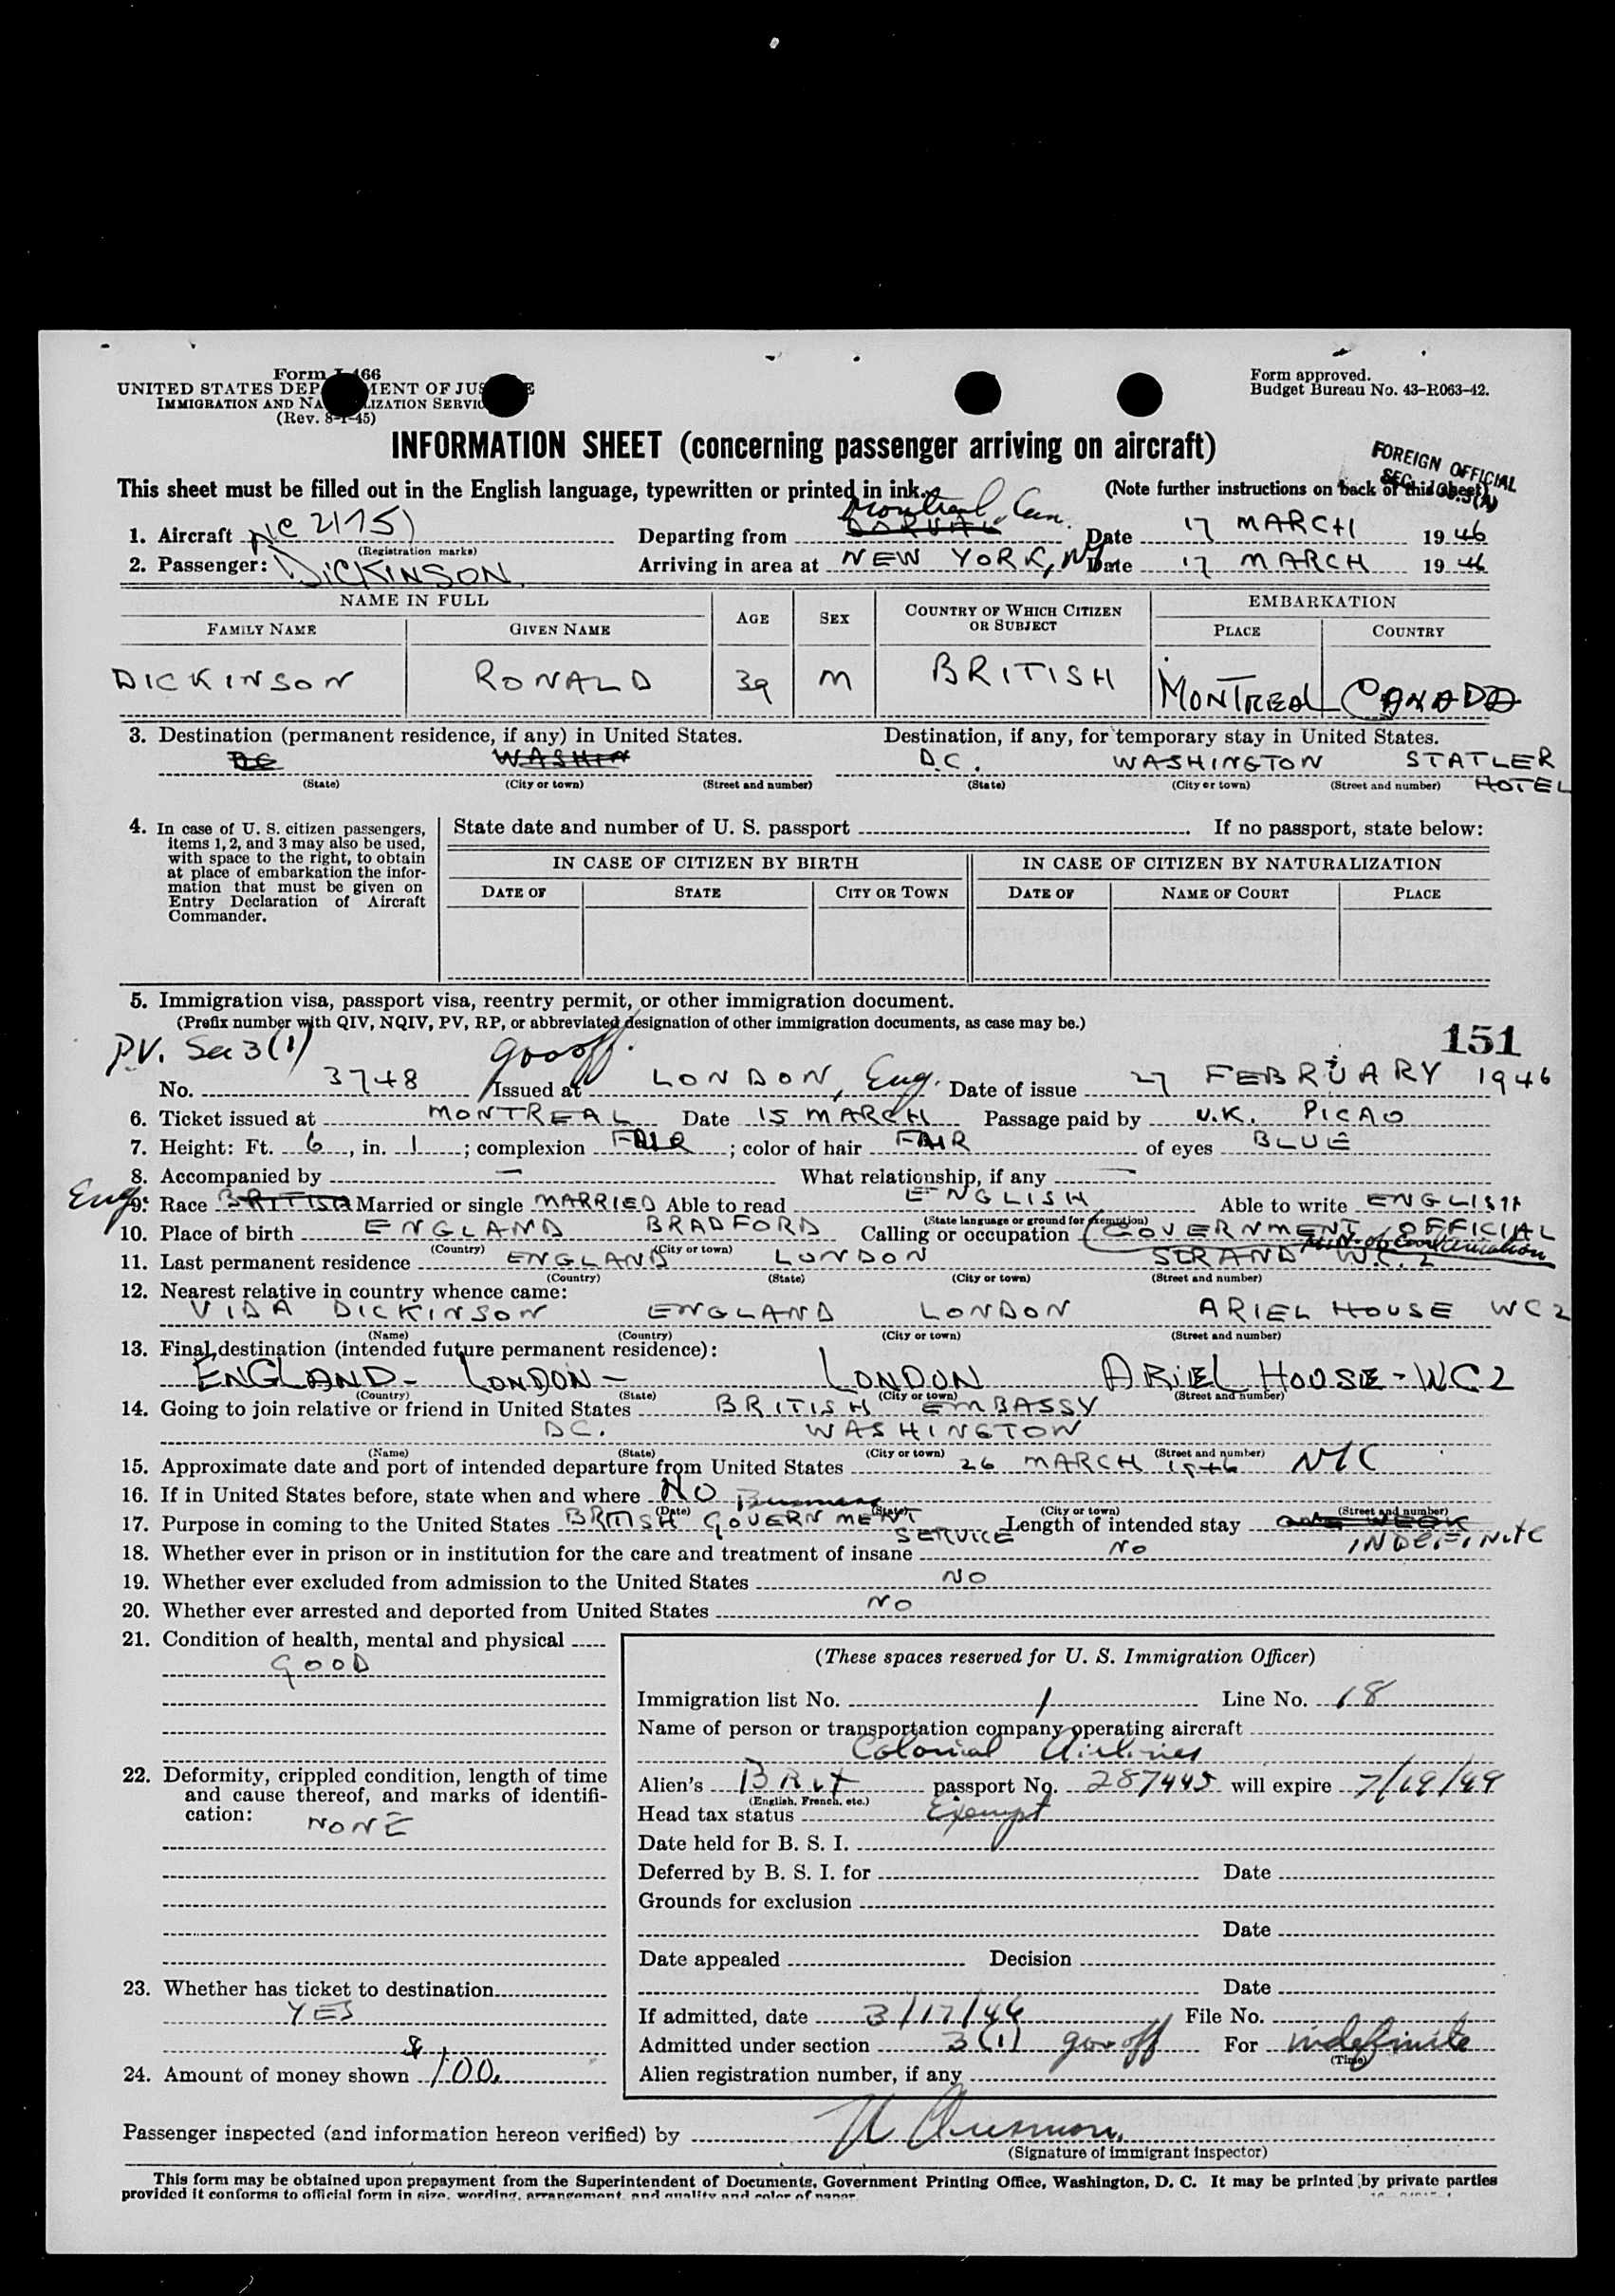 Form I-466
UNITED STATES DEPARTMENT OF JUSTICE
IMMIGRATION AND NATURALIZATION SERVICE
(Rev. 8-1-45)
Form approved.
Budget Bureau No. 43-R063-42.
INFORMATION SHEET (concerning passenger arriving on aircraft)
FOREIGN OFFICIAL
This sheet must be filled out in the English language, typewritten or printed in ink. (Note further instructions on back of this sheet)
1. Aircraft NC 21751 Departing from DORVAL Montreal, Can. Date 17 MARCH 1946
(Registration marks)
2. Passenger: DICKINSON Arriving in area at NEW YORK, NY Date 17 MARCH 1946
NAME IN FULL AGE SEX COUNTRY OF WHICH CITIZEN OR SUBJECT EMBARKATION
FAMILY NAME GIVEN NAME PLACE COUNTRY
DICKINSON RONALD 39 M BRITISH MONTREAL CANADA
3. Destination (permanent residence, if any) in United States. Destination, if any, for temporary stay in United States.
DC WASHIN D.C. WASHINGTON STATLER HOTEL
(State) (City or town) (Street and number) (State) (City or town) (Street and number)
4. In case of U. S. citizen passengers, items 1, 2, and 3 may also be used, with space to the right, to obtain at place of embarkation the information that must be given on Entry Declaration of Aircraft Commander.
State date and number of U. S. passport If no passport, state below:
IN CASE OF CITIZEN BY BIRTH IN CASE OF CITIZEN BY NATURALIZATION
DATE OF STATE CITY OR TOWN DATE OF NAME OF COURT PLACE
5. Immigration visa, passport visa, reentry permit, or other immigration document.
(Prefix number with QIV, NQIV, PV, RP, or abbreviated designation of other immigration documents, as case may be.)
151
P.V. Sec 3(1) gov off.
No. 3748 Issued at LONDON, Eng. Date of issue 27 FEBRUARY 1946
6. Ticket issued at MONTREAL Date 15 MARCH Passage paid by U.K. PICAO
7. Height: Ft. 6, in. 1; complexion FAIR; color of hair FAIR of eyes BLUE
8. Accompanied by — What relationship, if any —
Eng 9. Race BRITISH Married or single MARRIED Able to read ENGLISH Able to write ENGLISH
(State language or ground for exemption)
10. Place of birth ENGLAND BRADFORD Calling or occupation GOVERNMENT OFFICIAL
(Country) (City or town)
11. Last permanent residence ENGLAND LONDON STRAND W.C.2
(Country) (State) (City or town) (Street and number)
12. Nearest relative in country whence came:
VIDA DICKINSON ENGLAND LONDON ARIEL HOUSE WC2
(Name) (Country) (City or town) (Street and number)
13. Final destination (intended future permanent residence):
ENGLAND - LONDON - LONDON ARIEL HOUSE - WC2
(Country) (State) (City or town) (Street and number)
14. Going to join relative or friend in United States BRITISH EMBASSY
DC. WASHINGTON
(Name) (State) (City or town) (Street and number)
15. Approximate date and port of intended departure from United States 26 MARCH 1946 NYC
16. If in United States before, state when and where NO
(Date) (State) (City or town) (Street and number)
17. Purpose in coming to the United States Business BRITISH GOVERNMENT SERVICE Length of intended stay ONE WEEK INDEFINITE
18. Whether ever in prison or in institution for the care and treatment of insane NO
19. Whether ever excluded from admission to the United States NO
20. Whether ever arrested and deported from United States NO
21. Condition of health, mental and physical
GOOD
22. Deformity, crippled condition, length of time and cause thereof, and marks of identification: NONE
23. Whether has ticket to destination
YES
24. Amount of money shown $100.
(These spaces reserved for U. S. Immigration Officer)
Immigration list No. 1 Line No. 18
Name of person or transportation company operating aircraft
Colonial Airlines
Alien's Brit passport No. 287445 will expire 7/19/49
(English, French, etc.)
Head tax status Exempt
Date held for B. S. I.
Deferred by B. S. I. for Date
Grounds for exclusion
Date
Date appealed Decision
Date
If admitted, date 3/17/46 File No.
Admitted under section 3(1) gov off For indefinite
(Time)
Alien registration number, if any
Passenger inspected (and information hereon verified) by
(Signature of immigrant inspector)
This form may be obtained upon prepayment from the Superintendent of Documents, Government Printing Office, Washington, D. C. It may be printed by private parties
provided it conforms to official form in size, wording, arrangement, and quality and color of paper.